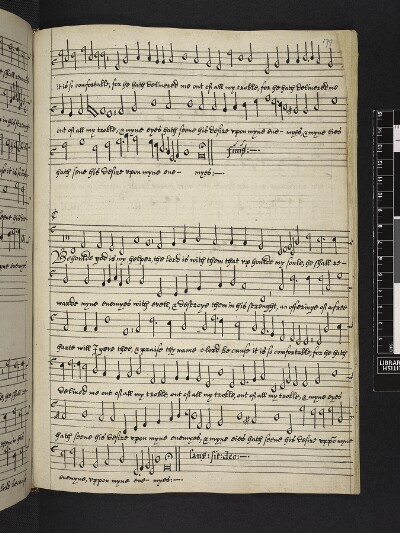 it is so comfortable, for he hath delivered me out of all my troble, for he hath delivered me
out of all my troble, & myne eyes hath seene his desire vpon myne ene- myes, & myne eies
hath sene his desire vpon myne ene- myes:—
finis:—
Behoulde god is my helper, the lord is with them that vp houlde my soule, he shall re-
warde myne enemyes with evell, & destroye them in his
an offeringe of a free
harte will I geve thee, & praise thy name o lord be cause it is so comfortable, for he hath
delivered me out of all my troble, out of all my troble, out of all my troble, & myne eyes
hath seene his desire vpon myne enemyes, & myne eies hath seene his desire vppon myne
enemyes, vppon myne ene- myes:—
laus: sit: deo:—
LIBRAR